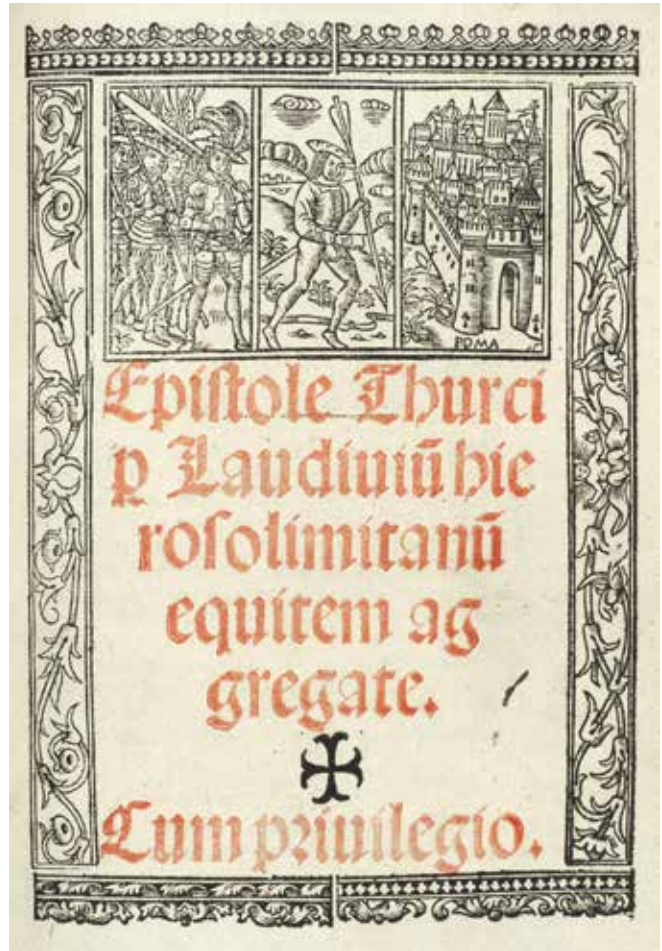 ROMA
Epiſtole Thurci
ꝑ Laudiuiū hie
roſolimitanū
equitem ag
gregate.
Cum priuilegio.